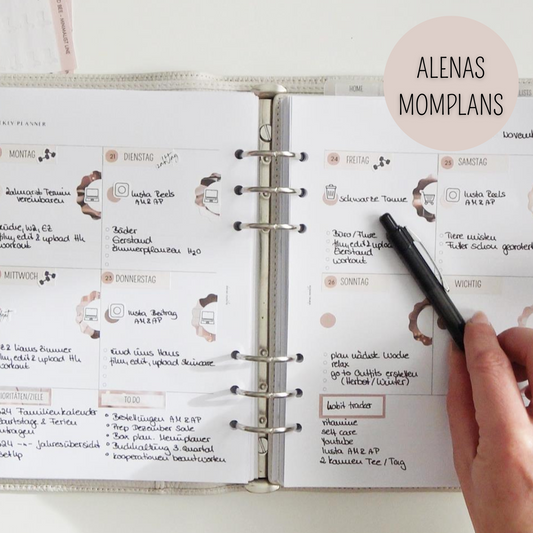 ALENAS
MOMPLANS
HOME
PLANNER
Novemb
MONTAG
Zahnarzt Termin
vereinbaren
film, edit & upload
workout
21 DIENSTAG
Insta Reels
AM & AP
Bäder
Gerstand
Zimmerpflanzen H2O
MITTWOCH
film, edit & upload
workout
23 DONNERSTAG
Insta Beitrag
AM & AP
rund ums Haus
film, edit, upload Skincare
24 Familienkalender
24 --- Jahresübersicht
TO DO
Bestellungen AM & AP
Prep Dezember Sale
Box plan. Menüplaner
Buchhaltung 3. Quartal
kooperationen beantworten
24 FREITAG
schwarze Tonne
Büro / Flure
film, edit & upload
Gerstand
workout
25 SAMSTAG
Insta Reels
AM & AP
Tiere misten
Futter schon
26 SONNTAG
plan nächste Woche
relax
go to Outfits erstellen
(Herbst / Winter)
WICHTIG
habit tracker
vitamine
self care
youtube
Insta AM & AP
2 Kannen Tee / Tag